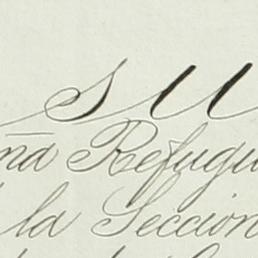 su
ña Refugi
la Seccion